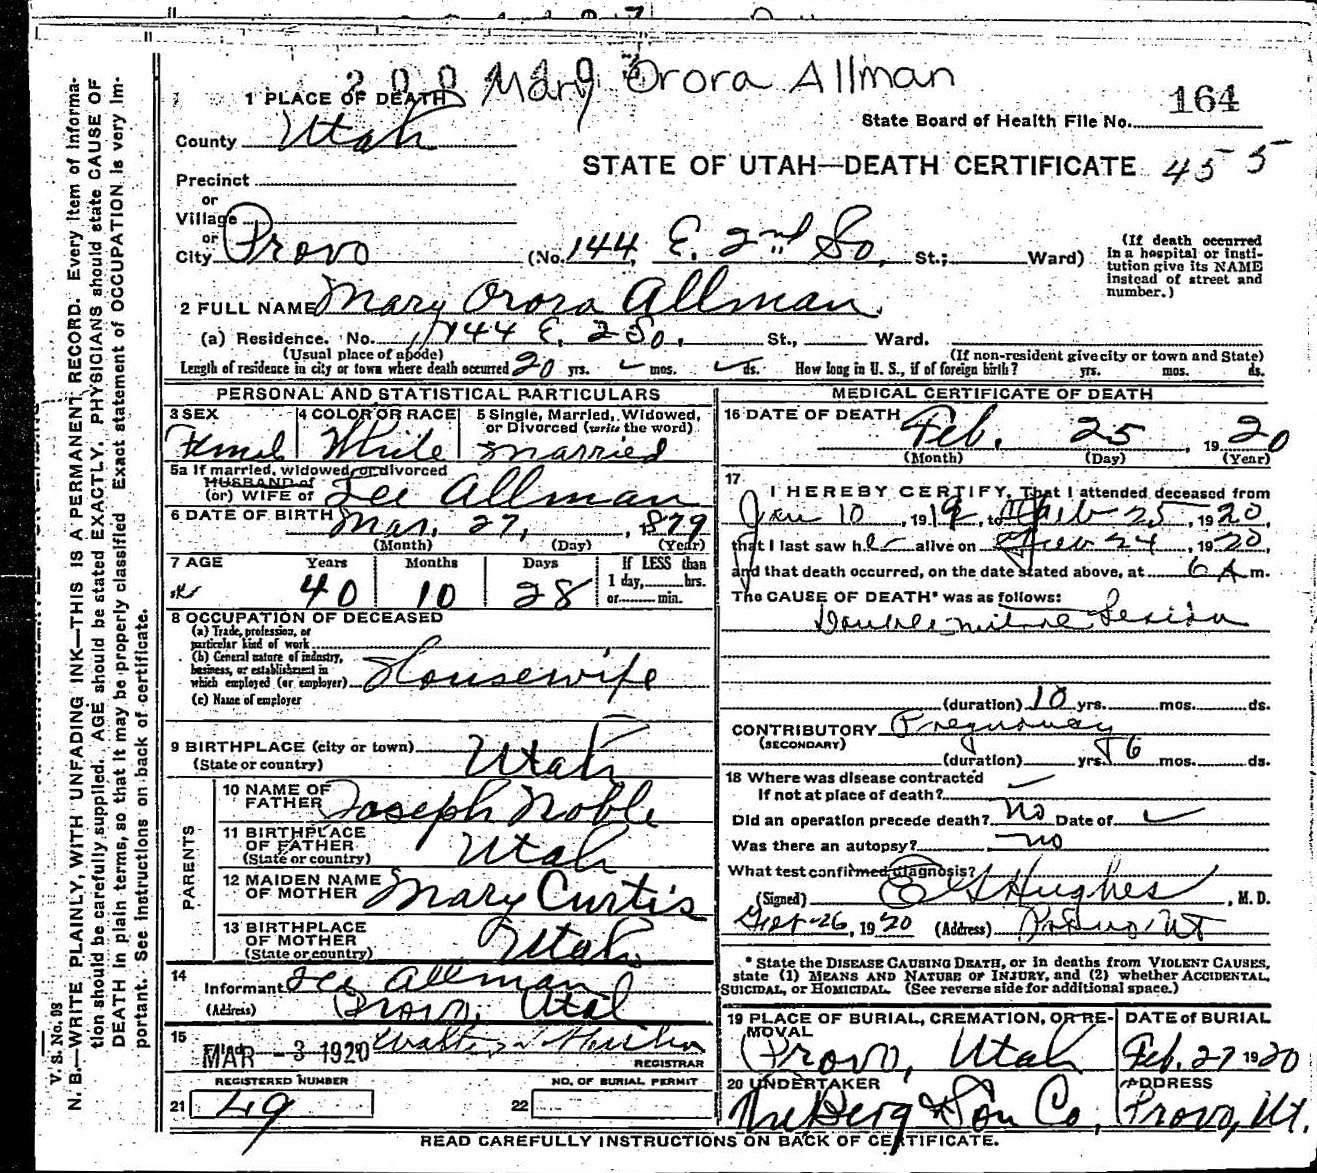 Mary Orora Allman
1 PLACE OF DEATH
164
State Board of Health File No.
County Utah
STATE OF UTAH—DEATH CERTIFICATE 455
Precinct
or
Village
or
City Provo (No. 144 E. 2nd So. St.; Ward)
(If death occurred in a hospital or institution give its NAME instead of street and number.)
2 FULL NAME Mary Orora Allman
(a) Residence. No. 144 E. 2 So. St., Ward.
(Usual place of abode) (If non-resident give city or town and State)
Length of residence in city or town where death occurred 20 yrs. mos. ds. How long in U. S., if of foreign birth? yrs. mos. ds.
PERSONAL AND STATISTICAL PARTICULARS
3 SEX Femal
4 COLOR OR RACE White
5 Single, Married, Widowed, or Divorced (write the word) Married
5a If married, widowed, or divorced
HUSBAND of
(or) WIFE of Lee Allman
6 DATE OF BIRTH Mar. 27, 1879
(Month) (Day) (Year)
7 AGE Years Months Days If LESS than
40 10 28 1 day, hrs.
or min.
8 OCCUPATION OF DECEASED
(a) Trade, profession, or
particular kind of work
(b) General nature of industry,
business, or establishment in
which employed (or employer) Housewife
(c) Name of employer
9 BIRTHPLACE (city or town)
(State or country) Utah
PARENTS
10 NAME OF FATHER Joseph Noble
11 BIRTHPLACE OF FATHER (State or country) Utah
12 MAIDEN NAME OF MOTHER Mary Curtis
13 BIRTHPLACE OF MOTHER (State or country) Utah
14
Informant Lee Allman
(Address) Provo, Utah
15 MAR -3 1920 Walter
REGISTRAR
REGISTERED NUMBER
21 49
NO. OF BURIAL PERMIT
22
MEDICAL CERTIFICATE OF DEATH
16 DATE OF DEATH Feb. 25, 1920
(Month) (Day) (Year)
17
I HEREBY CERTIFY, That I attended deceased from
Jan 10, 1919, to Feb 25, 1920,
that I last saw her alive on Feb 24, 1920,
and that death occurred, on the date stated above, at 6 A m.
The CAUSE OF DEATH* was as follows:
Double mitral Lesion
(duration) 10 yrs. mos. ds.
CONTRIBUTORY Pregnancy
(SECONDARY)
(duration) yrs. 6 mos. ds.
18 Where was disease contracted
If not at place of death?
Did an operation precede death? No Date of
Was there an autopsy? no
What test confirmed diagnosis?
(Signed) Hughes, M. D.
26, 1920 (Address)
* State the DISEASE CAUSING DEATH, or in deaths from VIOLENT CAUSES,
state (1) MEANS AND NATURE OF INJURY, and (2) whether ACCIDENTAL,
SUICIDAL, or HOMICIDAL. (See reverse side for additional space.)
19 PLACE OF BURIAL, CREMATION, OR REMOVAL Provo, Utah
DATE of BURIAL Feb. 27 1920
20 UNDERTAKER The Berg & Son Co.
ADDRESS Provo, Ut.
READ CAREFULLY INSTRUCTIONS ON BACK OF CERTIFICATE.
V. S. No. 98
N. B.—WRITE PLAINLY, WITH UNFADING INK—THIS IS A PERMANENT RECORD. Every item of informa-
tion should be carefully supplied. AGE should be stated EXACTLY. PHYSICIANS should state CAUSE OF
DEATH in plain terms, so that it may be properly classified. Exact statement of OCCUPATION is very im-
portant. See instructions on back of certificate.